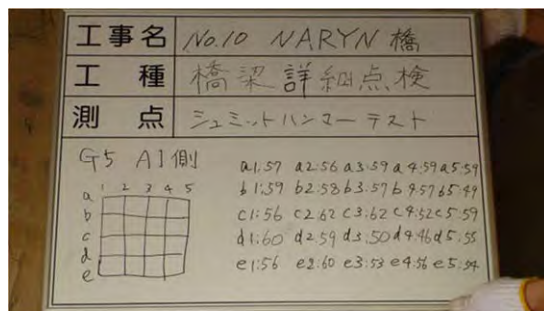 工事名 No.10 NARYN 橋
工種 橋梁詳細点検
測点 シュミットハンマーテスト
G5 A1側
1 2 3 4 5
a
b
c
d
e
a1:57 a2:56 a3:59 a4:59 a5:59
b1:59 b2:58 b3:57 b4:57 b5:49
c1:56 c2:62 c3:62 c4:52 c5:59
d1:60 d2:59 d3:50 d4:46 d5:55
e1:56 e2:60 e3:53 e4:56 e5:54